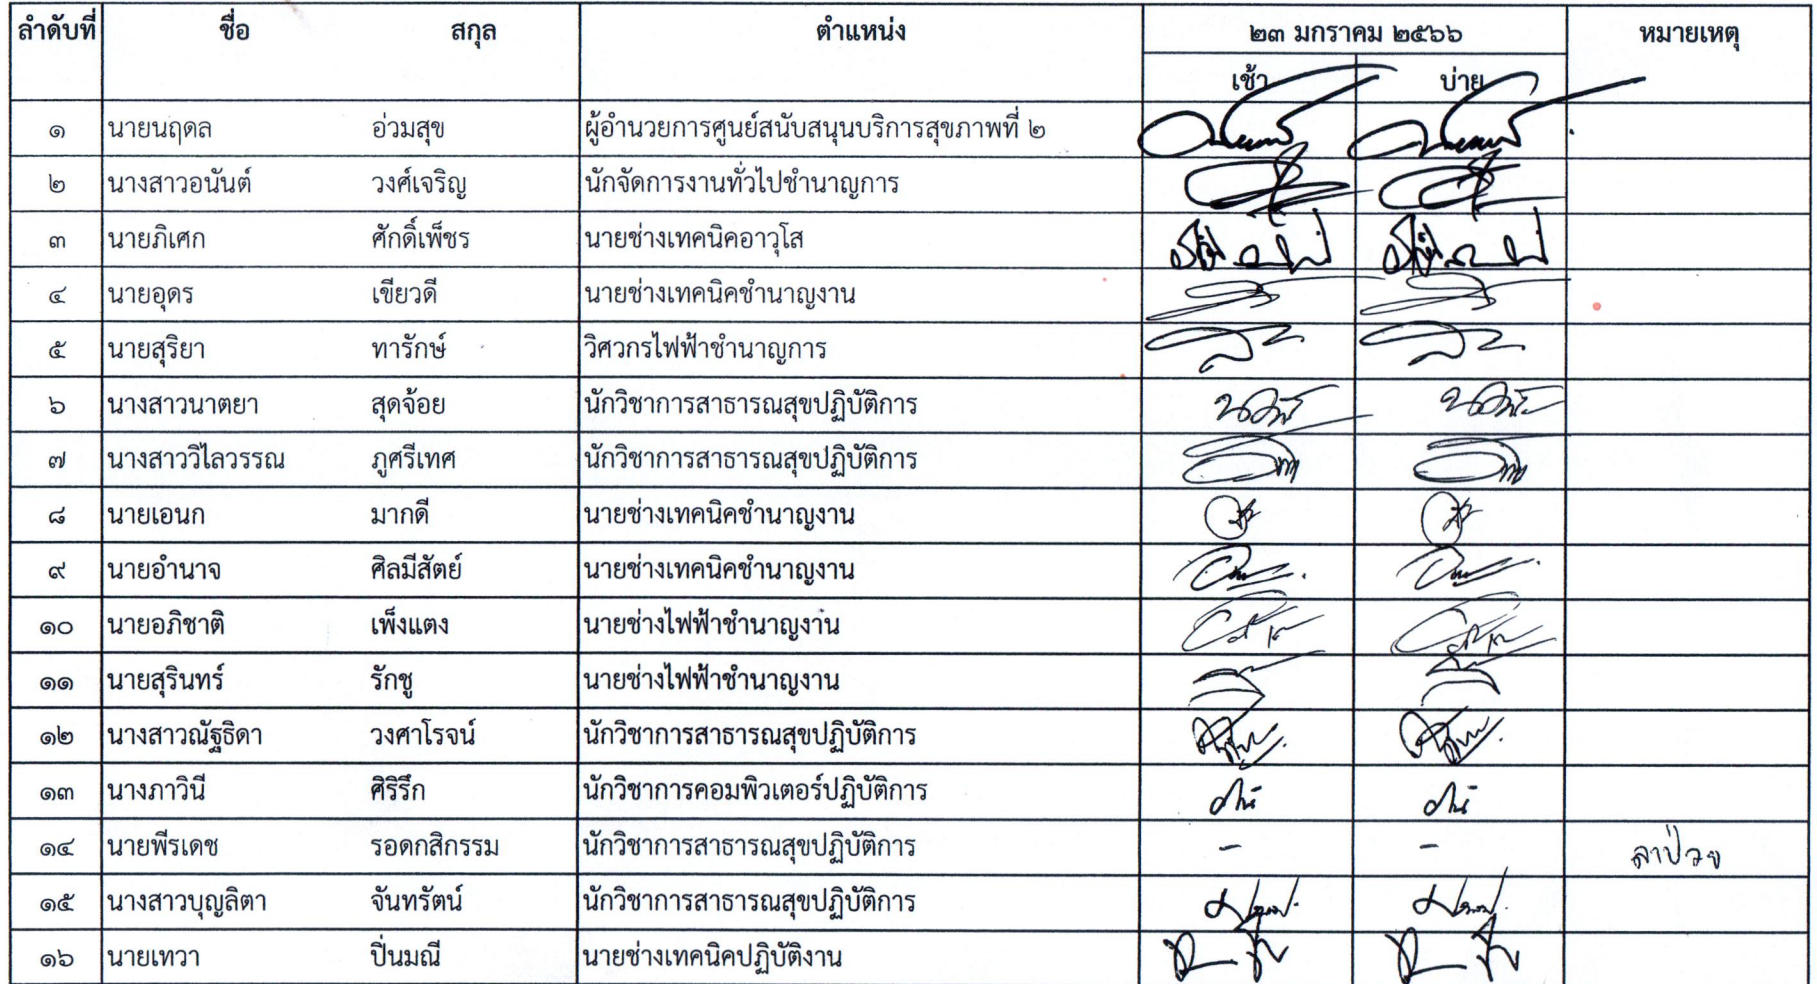 ลำดับที่ ชื่อ สกุล ตำแหน่ง ๒๓ มกราคม ๒๕๖๖ หมายเหตุ
เช้า บ่าย
๑ นายนฤดล อ่วมสุข ผู้อำนวยการศูนย์สนับสนุนบริการสุขภาพที่ ๒
๒ นางสาวอนันต์ วงศ์เจริญ นักจัดการงานทั่วไปชำนาญการ
๓ นายภิเศก ศักดิ์เพ็ชร นายช่างเทคนิคอาวุโส
๔ นายอุดร เขียวดี นายช่างเทคนิคชำนาญงาน
๕ นายสุริยา ทารักษ์ วิศวกรไฟฟ้าชำนาญการ
๖ นางสาวนาตยา สุดจ้อย นักวิชาการสาธารณสุขปฏิบัติการ
๗ นางสาววิไลวรรณ ภูศรีเทศ นักวิชาการสาธารณสุขปฏิบัติการ
๘ นายเอนก มากดี นายช่างเทคนิคชำนาญงาน
๙ นายอำนาจ ศิลมีสัตย์ นายช่างเทคนิคชำนาญงาน
๑๐ นายอภิชาติ เพ็งแตง นายช่างไฟฟ้าชำนาญงาน
๑๑ นายสุรินทร์ รักชู นายช่างไฟฟ้าชำนาญงาน
๑๒ นางสาวณัฐธิดา วงศาโรจน์ นักวิชาการสาธารณสุขปฏิบัติการ
๑๓ นางภาวินี ศิริรึก นักวิชาการคอมพิวเตอร์ปฏิบัติการ
๑๔ นายพีรเดช รอดกสิกรรม นักวิชาการสาธารณสุขปฏิบัติการ - - ลาป่วย
๑๕ นางสาวบุญลิตา จันทรัตน์ นักวิชาการสาธารณสุขปฏิบัติการ
๑๖ นายเทวา ปิ่นมณี นายช่างเทคนิคปฏิบัติงาน